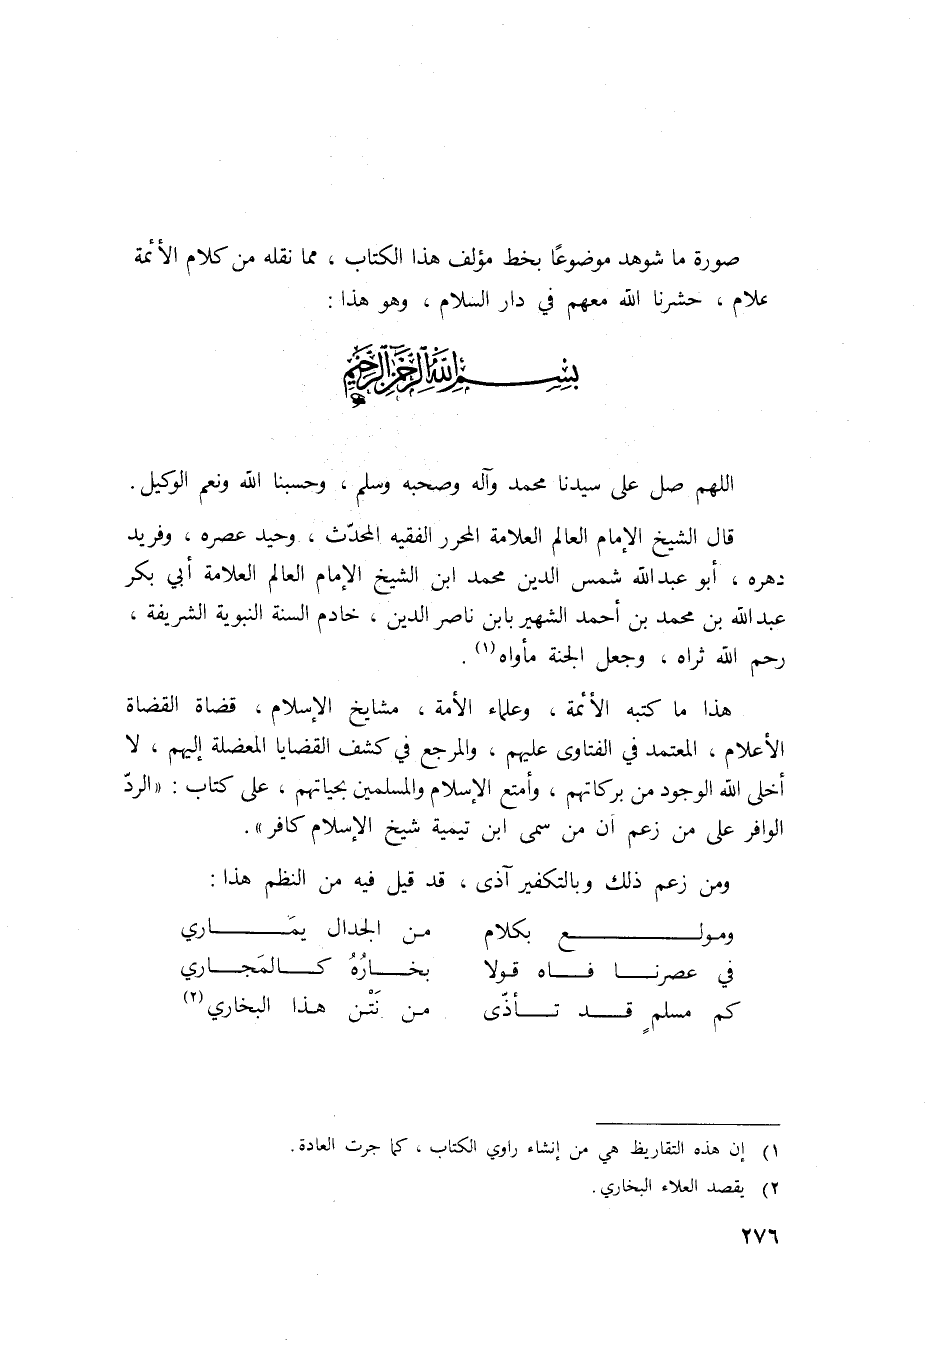 صورة ما شوهد موضوعًا بخط مؤلف هذا الكتاب ، مما نقله من كلام الأئمة
علام ، حشرنا الله معهم في دار السلام ، وهو هذا :
بسم الله الرحمن الرحيم
اللهم صل على سيدنا محمد وآله وصحبه وسلم ، وحسبنا الله ونعم الوكيل .
قال الشيخ الإمام العالم العلامة المحرر الفقيه المحدّث ، وحيد عصره ، وفريد
دهره ، أبو عبدالله شمس الدين محمد ابن الشيخ الإمام العالم العلامة أبي بكر
عبدالله بن محمد بن أحمد الشهير بابن ناصر الدين ، خادم السنة النبوية الشريفة ،
رحم الله ثراه ، وجعل الجنة مأواه(١) .
هذا ما كتبه الأئمة ، وعلماء الأمة ، مشايخ الإسلام ، قضاة القضاة
الأعلام ، المعتمد في الفتاوى عليهم ، والمرجع في كشف القضايا المعضلة إليهم ، لا
أخلى الله الوجود من بركاتهم ، وأمتع الإسلام والمسلمين بحياتهم ، على كتاب : «الردّ
الوافر على من زعم أن من سمى ابن تيمية شيخ الإسلام كافر» .
ومن زعم ذلك وبالتكفير آذى ، قد قيل فيه من النظم هذا :
ومولـــع بكلام من الجدال يمَـــاري
في عصرنـــا فـــاه قـولا بخـــارُهُ كـــالمَجـــاري
كم مسلمٍ قـــد تـــأذّى مـن نَتْن هـذا البخاري(٢)
١) إن هذه التقاريظ هي من إنشاء راوي الكتاب ، كما جرت العادة .
٢) يقصد العلاء البخاري .
٢٧٦